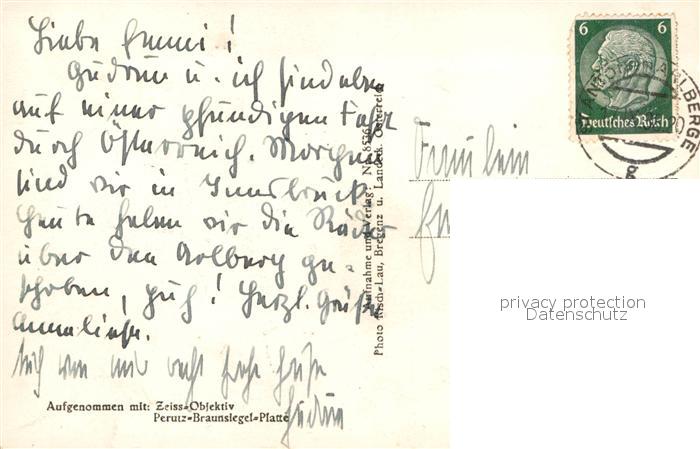 Liebe Emmi!
Gudrun u. ich sind eben
auf einer pfundigen Fahrt
durch Österreich. Morgen
sind wir in Innsbruck.
Heute haben wir die Räder
über den Arlberg ge-
schoben, puh! Herzl. Grüße
Anneliese.
Auch von mir recht frohe Grüße
Gudrun
Aufgenommen mit: Zeiss-Objektiv
Perutz-Braunsiegel-Platte
Aufnahme und Verlag: Nr.
Photo Risch-Lau, Bregenz u. Landeck, Österreich
Fräulein
6 6
Deutsches Reich
privacy protection
Datenschutz